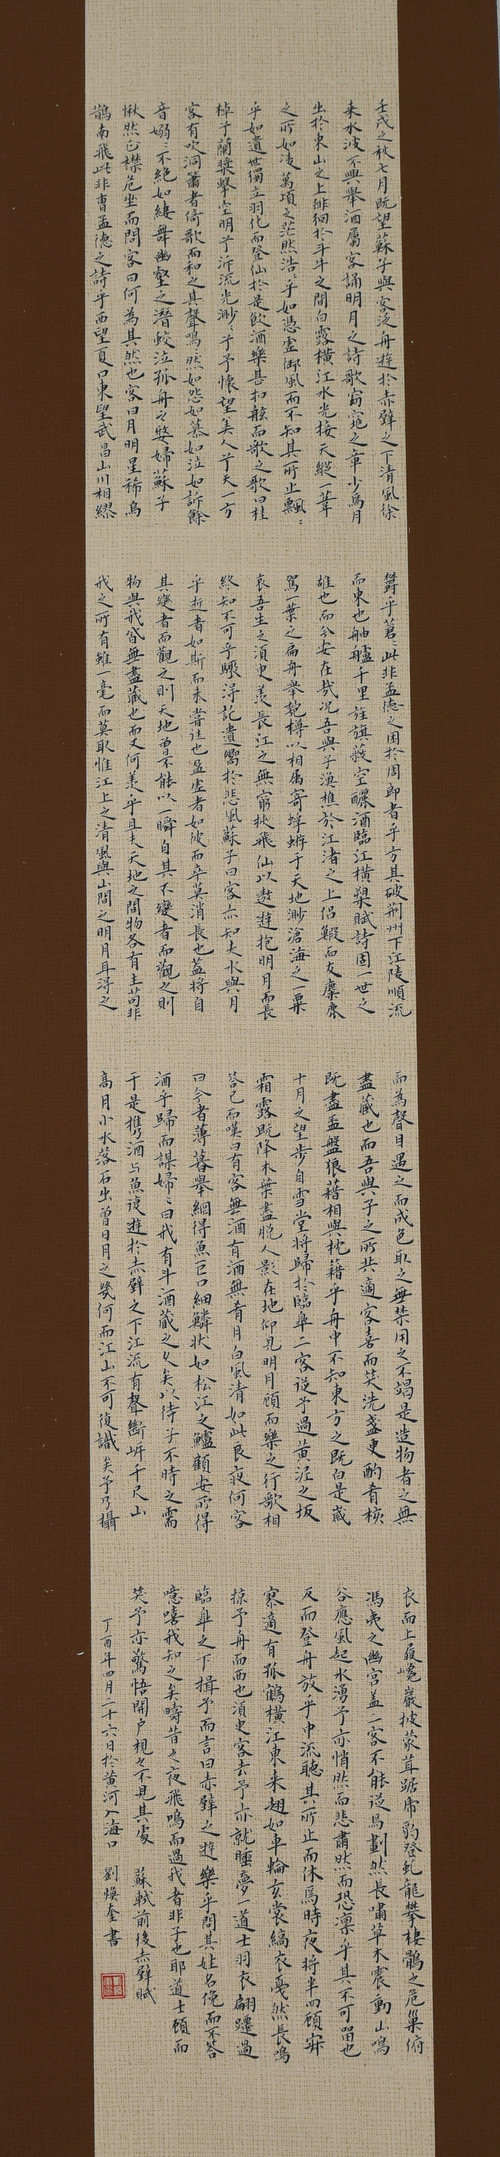 壬戌之秋七月既望蘇子與客泛舟遊於赤壁之下清風徐
来水波不興舉酒屬客誦明月之詩歌窈窕之章少焉月
出於東山之上徘徊於斗牛之間白露橫江水光接天縱一葦
之所如凌萬頃之茫然浩〻乎如憑虛御風而不知其所止飄〻
乎如遺世獨立羽化而登仙於是飲酒樂甚扣舷而歌之歌曰桂
棹兮蘭槳擊空明兮泝流光渺〻兮予懷望美人兮天一方
客有吹洞簫者倚歌而和之其聲嗚〻然如怨如慕如泣如訴餘
音嫋〻不絕如縷舞幽壑之潛蛟泣孤舟之嫠婦蘇子
愀然正襟危坐而問客曰何為其然也客曰月明星稀烏
鵲南飛此非曹孟德之詩乎西望夏口東望武昌山川相繆
鬱乎蒼〻此非孟德之困於周郎者乎方其破荆州下江陵順流
而東也舳艫千里旌旗蔽空釃酒臨江橫槊賦詩固一世之
雄也而今安在哉況吾與子漁樵於江渚之上侶鰕而友麋鹿
駕一葉之扁舟舉匏樽以相屬寄蜉蝣于天地渺滄海之一粟
哀吾生之須臾羨長江之無窮挾飛仙以遨遊抱明月而長
終知不可乎驟得託遺響於悲風蘇子曰客亦知夫水與月
乎逝者如斯而未嘗往也盈虛者如彼而卒莫消長也蓋將自
其變者而觀之則天地曾不能以一瞬自其不變者而觀之則
物與我皆無盡藏也而又何羨乎且夫天地之間物各有主苟非
我之所有雖一毫而莫取惟江上之清風與山間之明月耳得之
而為聲目遇之而成色取之無禁用之不竭是造物者之無
盡藏也而吾與子之所共適客喜而笑洗盞更酌肴核
既盡盃盤狼藉相與枕籍乎舟中不知東方之既白是歲
十月之望步自雪堂將歸於臨皋二客從予過黃泥之坂
霜露既降木葉盡脫人影在地仰見明月顧而樂之行歌相
答已而嘆曰有客無酒有酒無肴月白風清如此良夜何客
曰今者薄暮舉網得魚巨口細鱗狀如松江之鱸顧安所得
酒乎歸而謀婦〻曰我有斗酒藏之久矣以待子不時之需
于是攜酒与魚復遊於赤壁之下江流有聲斷岸千尺山
高月小水落石出曾日月之幾何而江山不可復識矣予乃攝
衣而上履巉巖披蒙茸踞虎豹登虬龍攀棲鶻之危巢俯
馮夷之幽宮蓋二客不能從焉劃然長嘯草木震動山鳴
谷應風起水湧予亦悄然而悲肅然而恐凛乎其不可留也
反而登舟放乎中流聽其所止而休焉時夜將半四顧寂
寥適有孤鶴橫江東来翅如車輪玄裳縞衣戛然長鳴
掠予舟而西也須臾客去予亦就睡夢一道士羽衣翩躚過
臨皋之下揖予而言曰赤壁之遊樂乎問其姓名俛而不答
噫嘻我知之矣疇昔之夜飛鳴而過我者非子也耶道士顧而
笑予亦驚悟開戶視之不見其處 蘇軾前後赤壁賦
丁酉年四月二十六日於黃河入海口 劉煥奎書